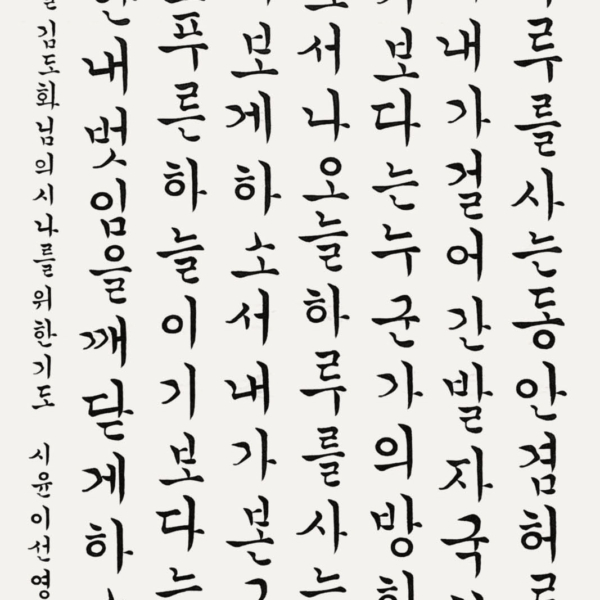 루를사는동안겸허
내가걸어간발자국
보다는누군가의방
서나오늘하루를사는
보게하소서내가본
푸른하늘이기보다는
내벗임을깨닫게하
김도화님의시나를위한기도 시윤이선영